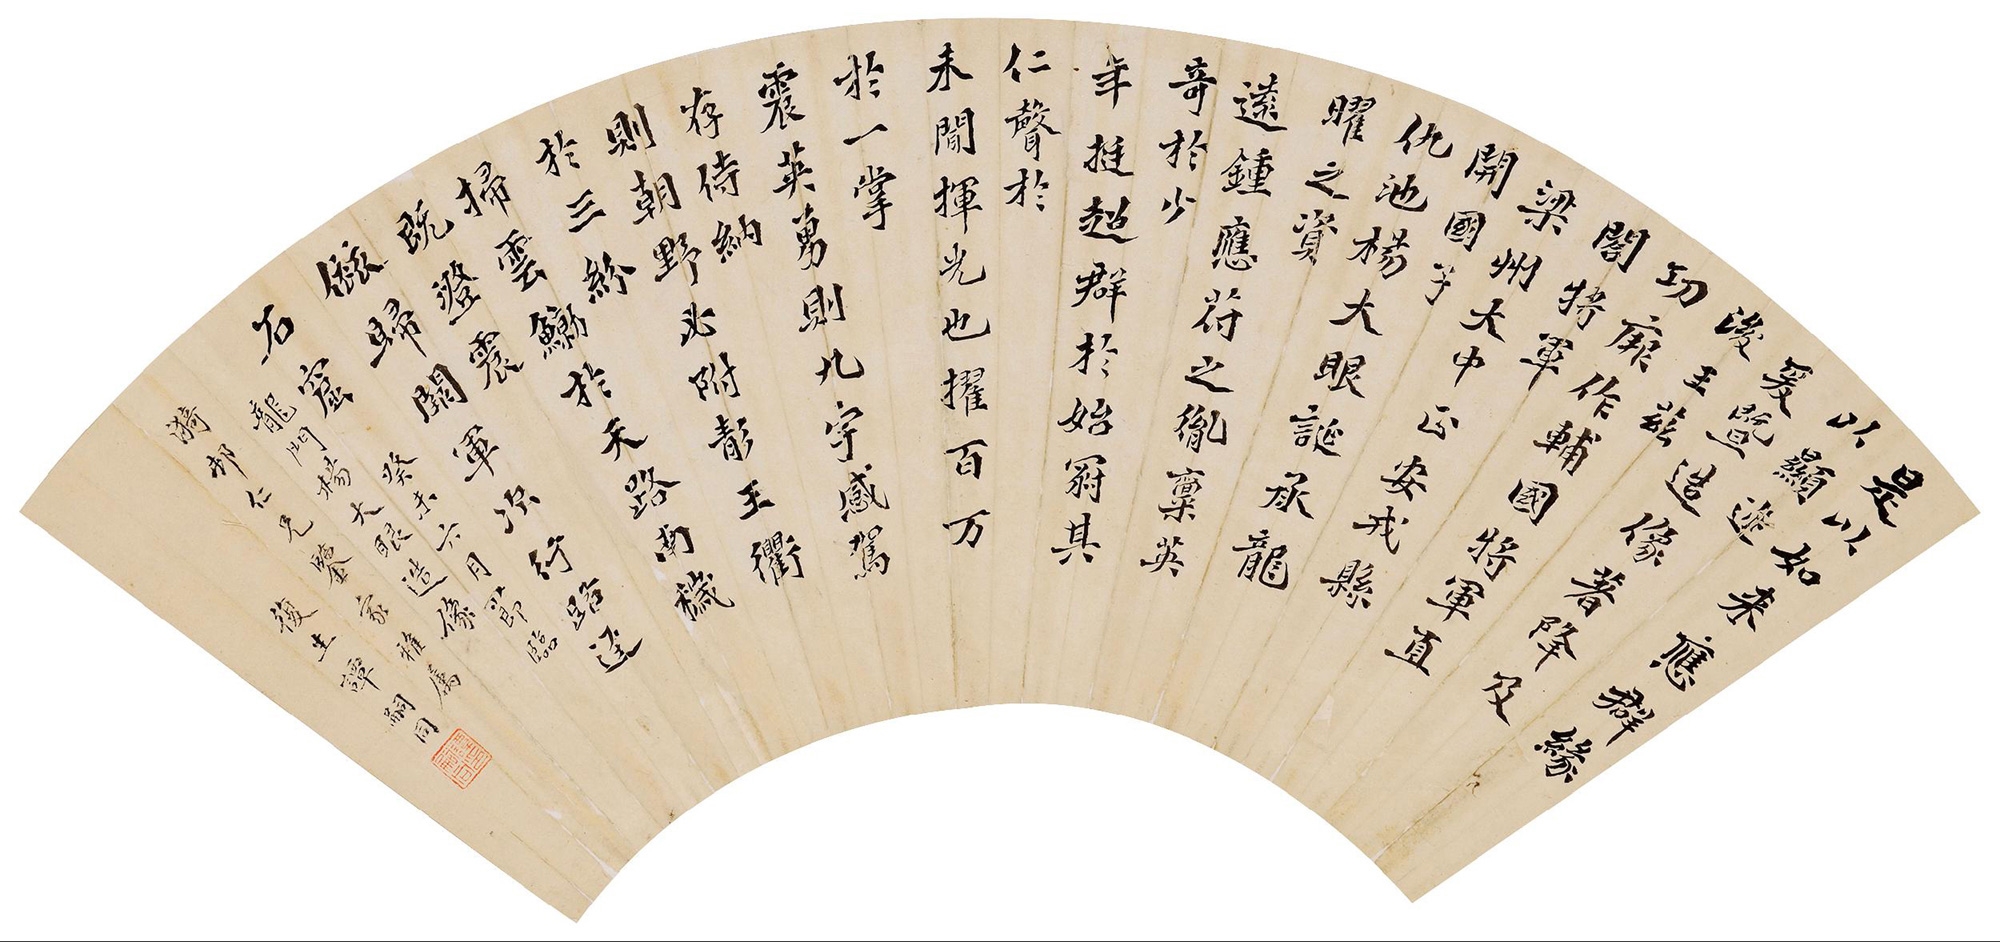 是以如来應群緣
以顯迹
爰暨造像著降及
浚王茲
功厥作輔國將軍直
閣將軍
梁州大中正安戎縣
開國子
仇池楊大眼誕承龍
曜之資
遠鍾應符之胤稟英
奇於少
年挺超群於始冠其
仁聲於
未聞揮光也擢百万
於一掌
震英勇則九宇感駕
存侍納
則朝野必附彭王衢
於三紛
掃雲鯨於天路南穢
既澄震
旅歸闕軍次行路逕
石窟
癸未六月節臨
龍門楊大眼造像
漪邨仁兄鑒家雅属
復生譚嗣同